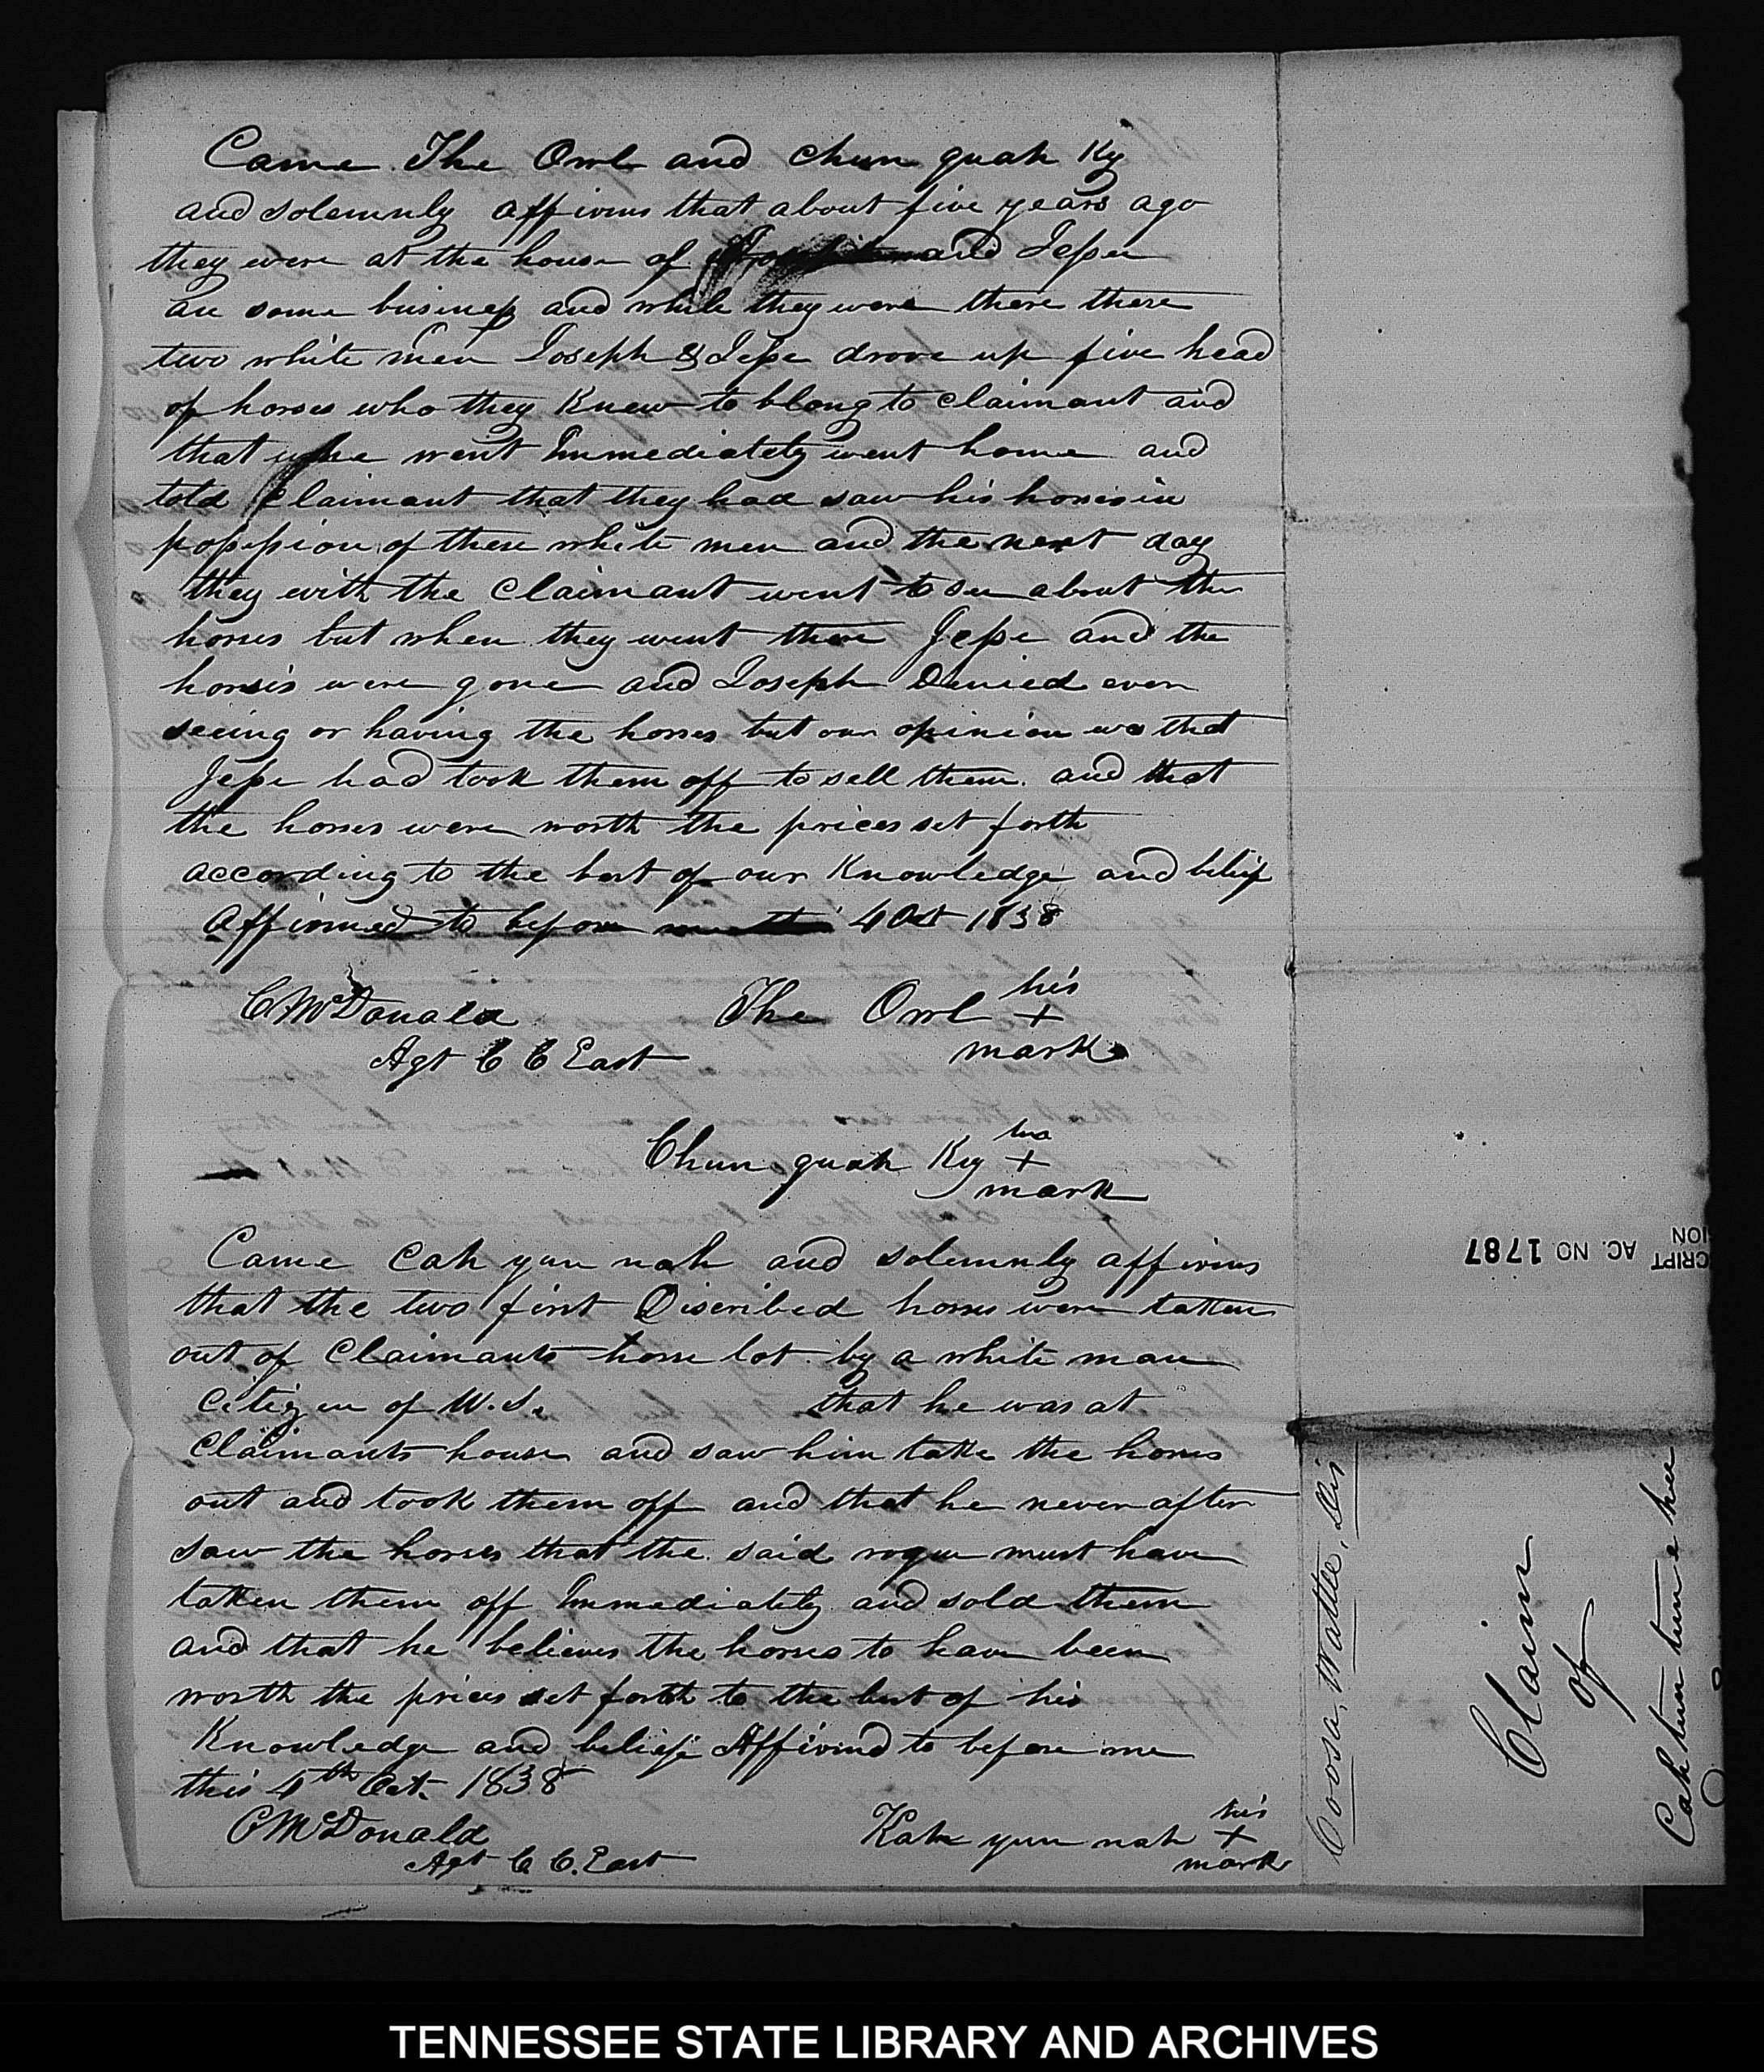 Came The Owl and Chun quah Ky
and solemnly affirms that about five years ago
they were at the house of and Jesse
on some business and while they were there these
two white men Joseph & Jesse drove up five head
of horses who they Knew to blong to Claimant and
that went Immediately went home and
told Claimant that they had saw his horses in
possission of these white men and the next day
they with the Claimant went to see about the
horses but when they went there Jesse and the
horses were gone and Joseph Denied ever
seeing or having the horses but our opinion was that
Jesse had took them off to sell them. and that
the horses were worth the prices set forth
according to the best of our Knowledge and belief
Affirmed to before 4 Oct 1838
C McDonald The Owl his + mark
Agt C C East
Chun quah Ky his + mark
Came Cah yuu nah and solemnly affirms
that the two first Discribed horses were taken
out of Claimants horse lot by a white man
Citizen of U.S. that he was at
Claimants house and saw him take the horses
out and took them off and that he never after
saw the horses that the said rogue must have
taken them off Immediately and sold them
and that he believes the horses to have been
worth the prices set forth to the best of his
Knowledge and belief Affirmd to before me
this 4th Oct. 1838
C McDonald Kah yuu nah his + mark
Agt C C. East
Coosa, Wattee, Dis
Claim
of
CRIPT AC. NO. 1787
ION
TENNESSEE STATE LIBRARY AND ARCHIVES